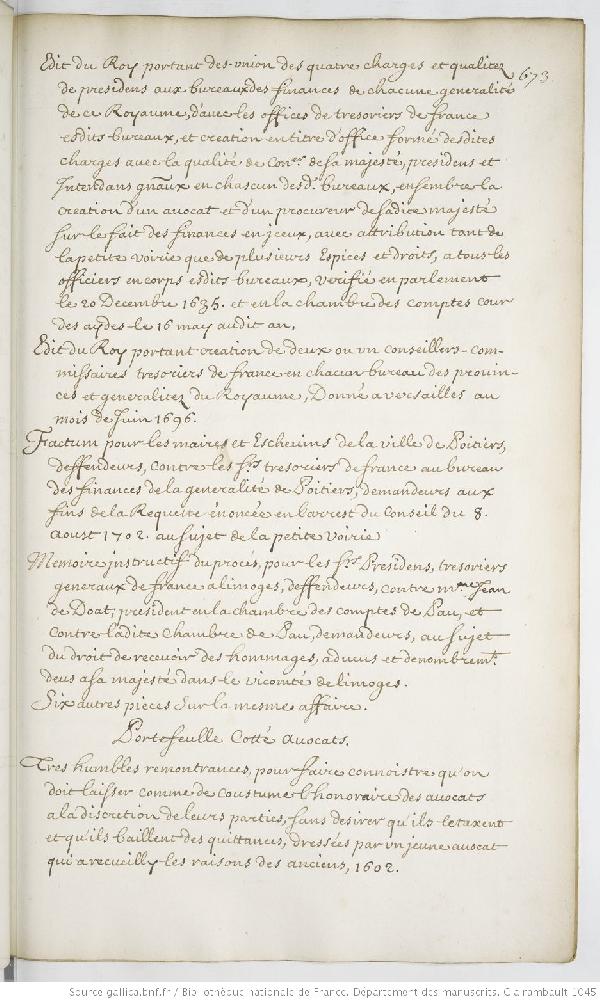 Edit du Roy portant des-vnion des quatre charges et qualitez
673
de presidens aux bureaux des finances de chacune generalité
de ce Royaume, d'auec les offices de tresoriers de france
esdits bureaux, et creation en titre d'office formé desdites
charges avec la qualité de Con.ers de sa majesté, presidens et
Intendans gnaux en chascun desd. bureaux, ensembre la
creation d'un avocat et d'un procureur de sadite majesté
sur le fait des finances en jceux, avec attribution tant de
la petite voirie que de plusieurs Espices et droits, a tous les
officiers en corps esdits bureaux, verifié en parlement
le 20 Decembre 1635. et en la chambre des comptes cour
des aydes le 16 may audit an.
Edit du Roy portant creation de deux ou vn conseillers-com-
missaires tresoriers de france en chacun bureau des provin-
ces et generalitez du Royaume, Donné a versailles au
mois de Juin 1696.
Factum pour les maires et Eschevins de la ville de Poitiers,
deffendeurs, contre les srs tresoriers de france au bureau
des finances de la generalité de Poitiers, demandeurs aux
fins de la Requeste énoncée en l'arrest du Conseil du 8.
aoust 1702. au sujet de la petite voirie
Memoire jnstructif du procés, pour les srs Presidens, tresoriers
generaux de france a limoges, deffendeurs, contre m.re Jean
de Doat, president en la chambre des comptes de Pau, et
contre ladite Chambre de Pau, demandeurs, au sujet
du droit de recevoir des hommages, adveus et denombremt.
deus a sa majesté dans le vicomté de limoges.
Six autres pieces sur la mesme affaire.
Portefeuille Cotté avocats.
Tres humbles remontrances, pour faire connoistre qu'on
doit laisser comme de coustume l'honoraire des avocats
a la discretion de leurs parties, sans desirer qu'ils le taxent
et qu'ils baillent des quittances, dressées par vn jeune avocat
qui a recueilly les raisons des anciens, 1602.
Source gallica.bnf.fr / Bibliothèque nationale de France. Département des manuscrits. Clairambault 1045